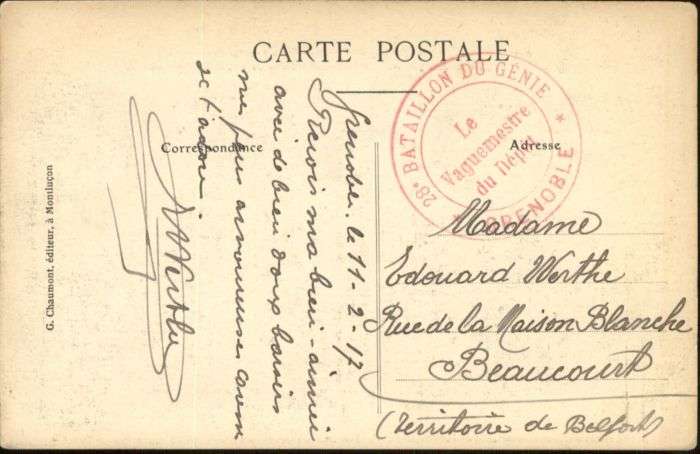 CARTE POSTALE
Correspondance
Adresse
28e BATAILLON DU GÉNIE
* GRENOBLE *
Le
Vaguemestre
du Dépôt
Grenoble. le 11-2-17
Reçois ma bien-aimée
avec de bien doux baisers
mes plus amoureuses caresses
de t'adorer.
EWerthe
Madame
Edouard Werthe
Rue de la Maison Blanche
Beaucourt
(Territoire de Belfort)
G. Chaumont, éditeur, à Montluçon